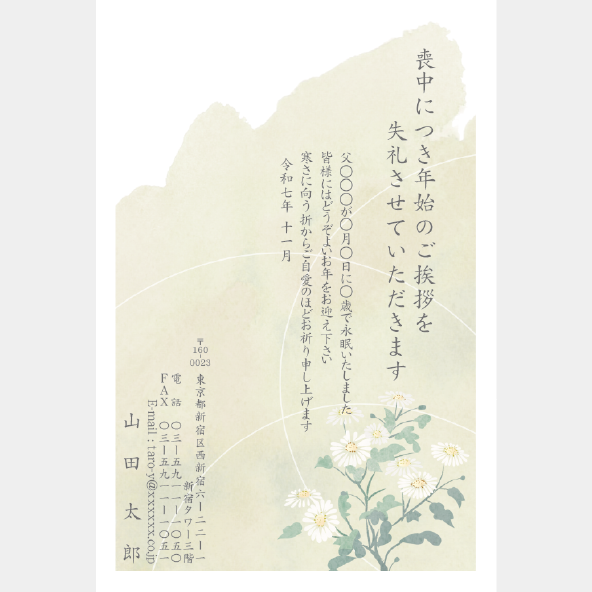 喪中につき年始のご挨拶を
失礼させていただきます
父〇〇〇が〇月〇日に〇歳で永眠いたしました
皆様にはどうぞよいお年をお迎え下さい
寒さに向う折からご自愛のほどお祈り申し上げます
令和七年 十一月
〒160-0023
東京都新宿区西新宿六ー二二ー一
新宿タワー三階
電話 〇三ー五九一一ー一〇五〇
FAX 〇三ー五九一一ー一〇五一
E-mail：taro-y@xxxxxx.co.jp
山田太郎